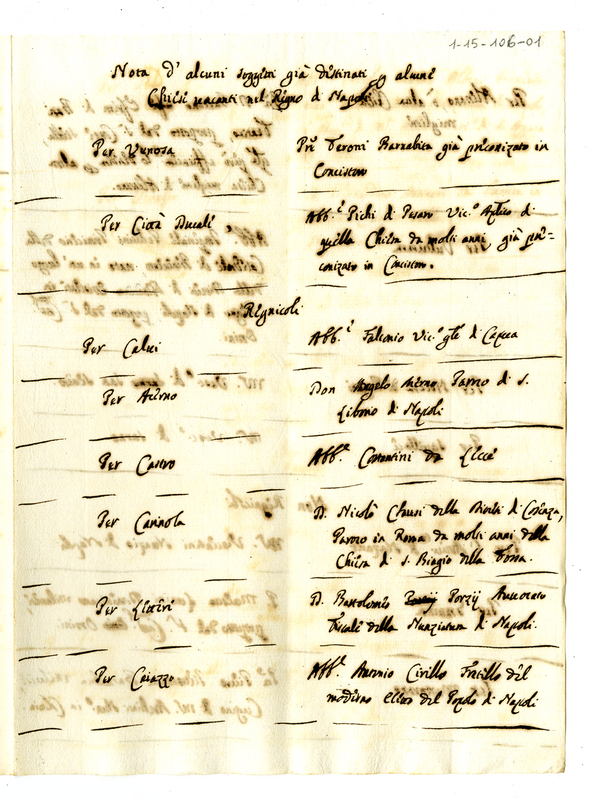 1-15-106-01
Nota d' alcuni soggetti già destinati p alcune
Chiese vacanti nel Regno di Napoli
Per Venosa
Pre Veroni Barnabita già preconizato in
Concistoro
Per Città Ducale
Abb.e Pichi di Pesaro Vic.o Aplico di
quella Chiesa da molti anni, già pre=
conizato in Concistoro.
Regnicoli
Per Calvi
Abb.e Falconio Vic.o gle di Capua
Per Acerno
Don Angelo Paroco di S.
Liborio di Napoli
Per Castro
Abb.e Costantini da Lecce
Per Carinola
D. Nicolò Clausi della Diocesi di Cosenza,
Paroco in Roma da molti anni della
Chiesa di S. Biagio della Fossa.
Per Lettere
D. Bartolomeo Porzij Avvocato
Fiscale della Nunziatura di Napoli.
Per Caiazzo
Abb.e Antonio Cirillo Fratello del
moderno eletto del Popolo di Napoli